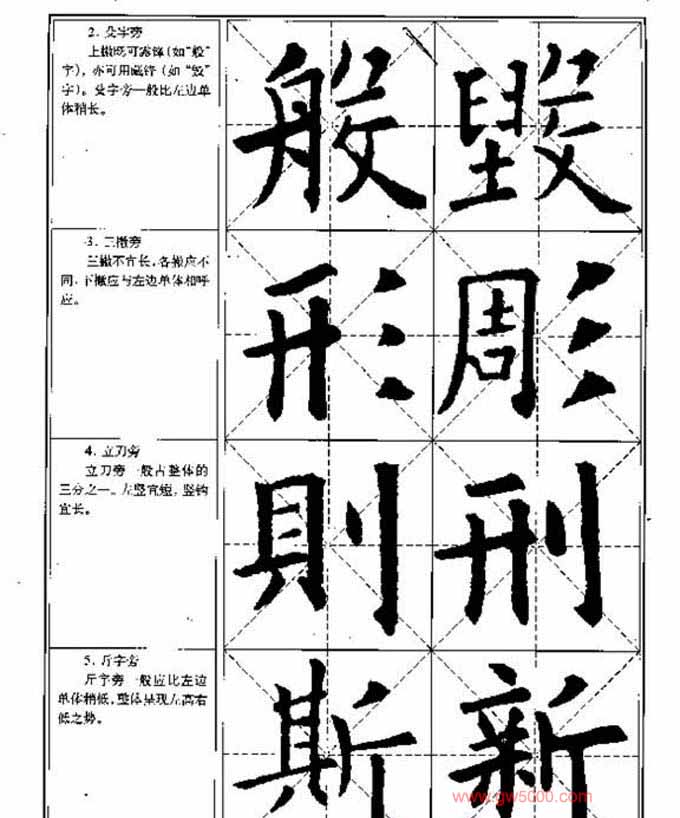 2. 殳字旁
上撇既可露锋(如“般”
字),亦可用藏锋(如“毁”
字)。殳字旁一般比左边单
体稍长。
般 毁
3. 三撇旁
三撇不宜长,各撇应不
同,下撇应与左边单体相呼
应。
形 彫
4. 立刀旁
立刀旁一般占整体的
三分之一。左竖宜短,竖钩
宜长。
則 刑
5. 斤字旁
斤字旁一般应比左边
单体稍低,整体呈现左高右
低之势。
斯 新
www.gw5000.com